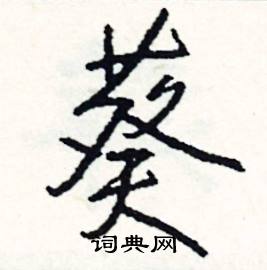 葵
词典网